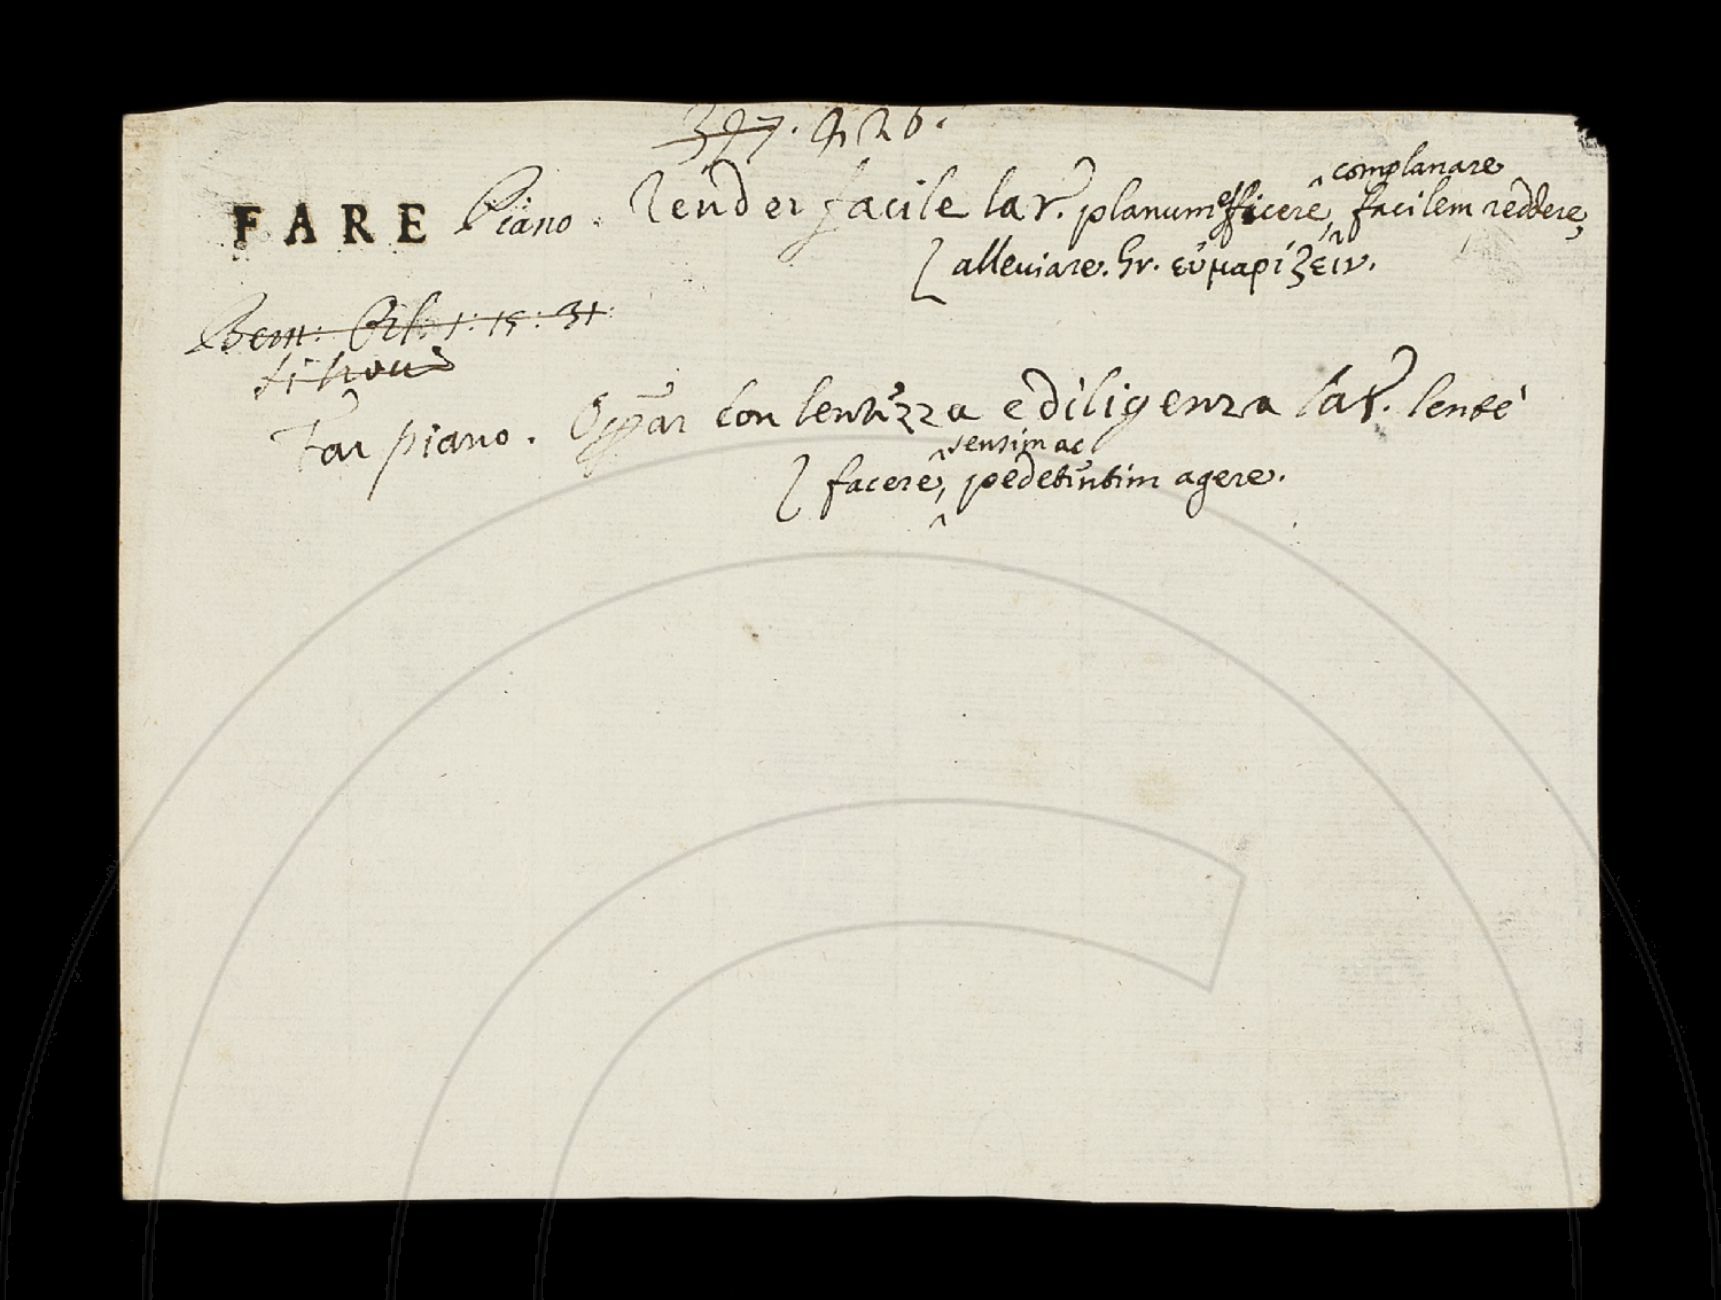 397. 426.
complanare
FARE Piano. Render facile lat. planum efficere, facilem reddere,
alleviare. Gr. εὐμαρίζειν.
Bem: Orl: 1: 15: 31
si trova
Far piano. Oppar con lentezza e diligenza lat. lentè
sensim ac
facere, pedetentim agere.